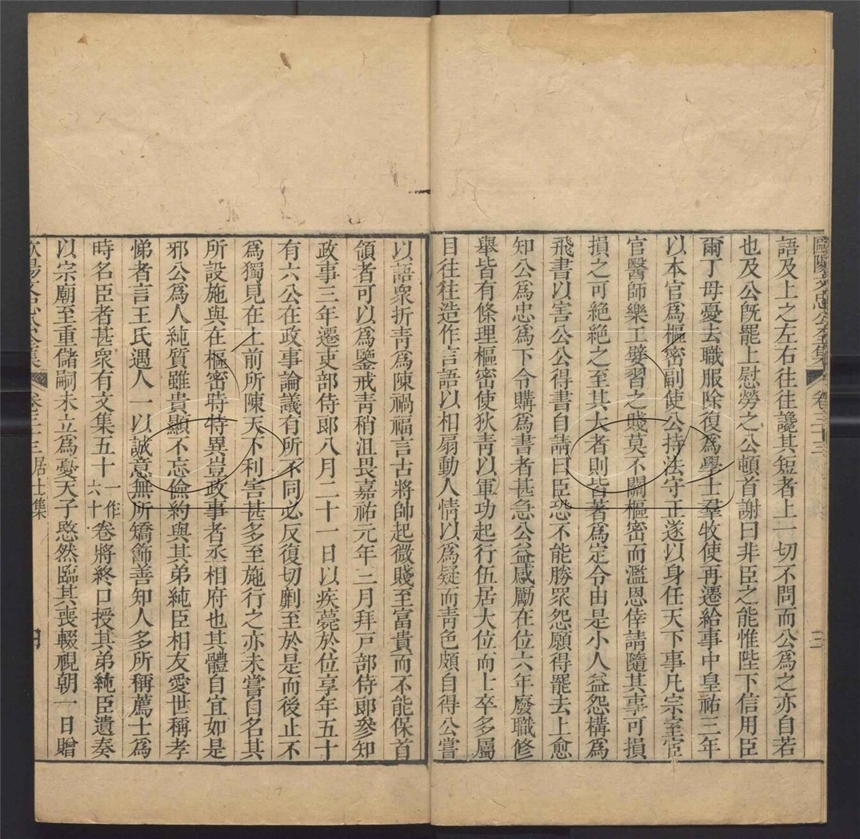 歐陽文忠公全集 卷二十三 三
語及上之左右往往譏其短者上一切不問而公為之亦自若
也及公旣罷上慰勞之公頓首謝曰非臣之能惟陛下信用臣
爾丁母憂去職服除復為學士羣牧使再遷給事中皇祐三年
以本官為樞密副使公持法守正遂以身任天下事凡宗室宦
官醫師樂工嬖習之賤莫不關樞密而濫恩倖請隨其事可損
損之可絕絕之至其大者則皆著為定令由是小人益怨構為
飛書以害公公得書自請曰臣恐不能勝眾怨願得罷去上愈
知公為忠為下令購為書者甚急公益感勵在位六年廢職修
舉皆有條理樞密使狄青以軍功起行伍居大位而上卒多屬
目往往造作言語以相扇動人情以為疑而青色頗自得公嘗
以語眾折青為陳禍福言古將帥起微賤至富貴而不能保首
領者可以為鑒戒青稍沮畏嘉祐元年二月拜戸部侍郎參知
政事三年遷吏部侍郎八月二十一日以疾薨於位享年五十
有六公在政事論議有所不同必反復切劘至於是而後止不
為獨見在上前所陳天下利害甚多至施行之亦未嘗自名其
所設施與在樞密時特異豈政事者丞相府也其體自宜如是
邪公為人純質雖貴顯不忘儉約與其弟純臣相友愛世稱孝
悌者言王氏遇人一以誠意無所矯飾善知人多所稱薦士為
時名臣者甚眾有文集五十一作六十卷將終口授其弟純臣遺奏
以宗廟至重儲嗣未立為憂天子愍然臨其喪輟視朝一日贈
歐陽文忠公全集 卷二十三 居士集 四